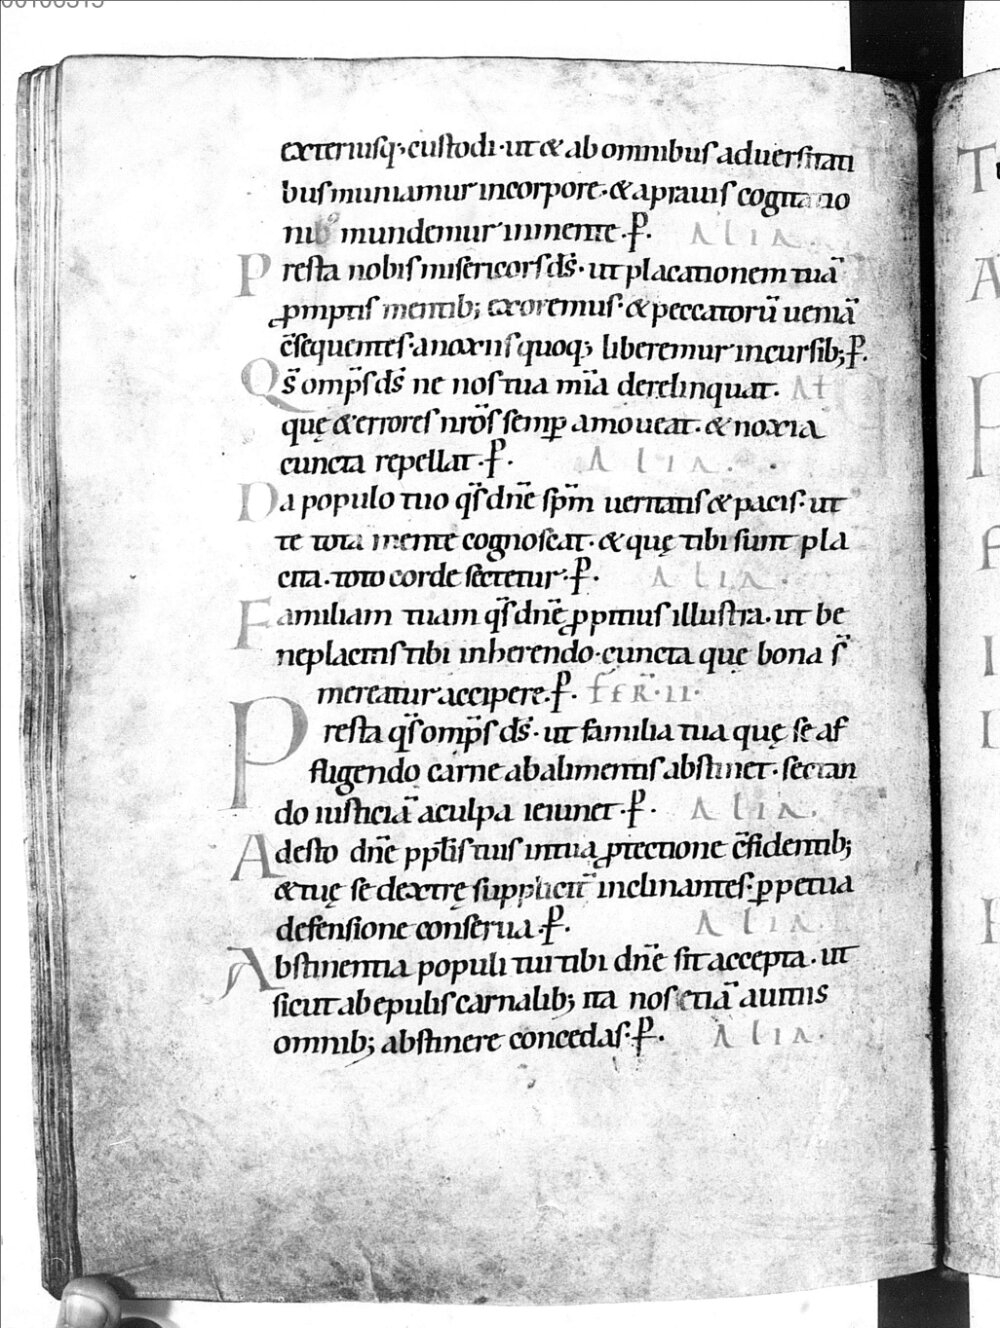 exteriusq; custodi · ut & ab omnibus aduersitati
bus muniamur in corpore · & a prauis cogitatio
nib; mundemur in mente · P̱ · ALIA ·
Presta nobis misericors d̄s · ut placationem tuā
ꝓmptis mentib; exoremus · & peccatorū ueniā
c̄sequentes · a noxiis quoq; liberemur incursib; P̱ ·
Qs̄ omp̄s d̄s ne nos tua mīa derelinquat · Aƚ
quę & errores nr̄os semꝑ amoueat · & noxia
cuncta repellat · P̱ · ALIA ·
Da populo tuo qs̄ dn̄e sp̄m ueritatis & pacis · ut
te tota mente cognoscat · & quę tibi sunt pla
cita · toto corde sectetur · P̱ · ALIA ·
Familiam tuam qs̄ dn̄e ꝓpitius illustra · ut be
neplacitis tibi inherendo · cuncta quę bona s̄
mereatur accipere · P̱ · FER · II ·
Presta qs̄ omp̄s d̄s · ut familia tua quę se af
fligendo carne ab alimentis abstinet · sectan
do iusticiā a culpa ieiunet · P̱ · ALIA ·
Adesto dn̄e pp̄lis tuis in tua ꝓtectione c̄fidentib;
& tuę se dextrę suppliciť inclinantes · ꝑpetua
defensione conserua · P̱ · ALIA ·
Abstinentia populi tui tibi dn̄e sit accepta · ut
sicut ab epulis carnalib; ita nos etiā a uitiis
omnib; abstinere concedas · P̱ · ALIA ·